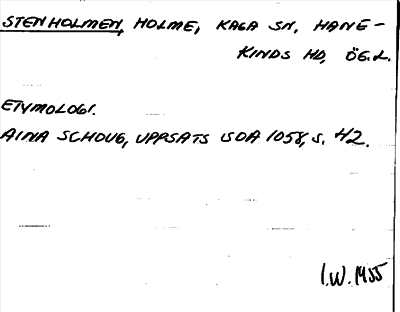 STENHOLMEN, HOLME, KAGA SN, HANE-
KINDS HD, ÖG.L.
ETYMOLOGI.
AINA SCHOUG, UPPSATS SOA 1058, S. 42.
I.W. 1955